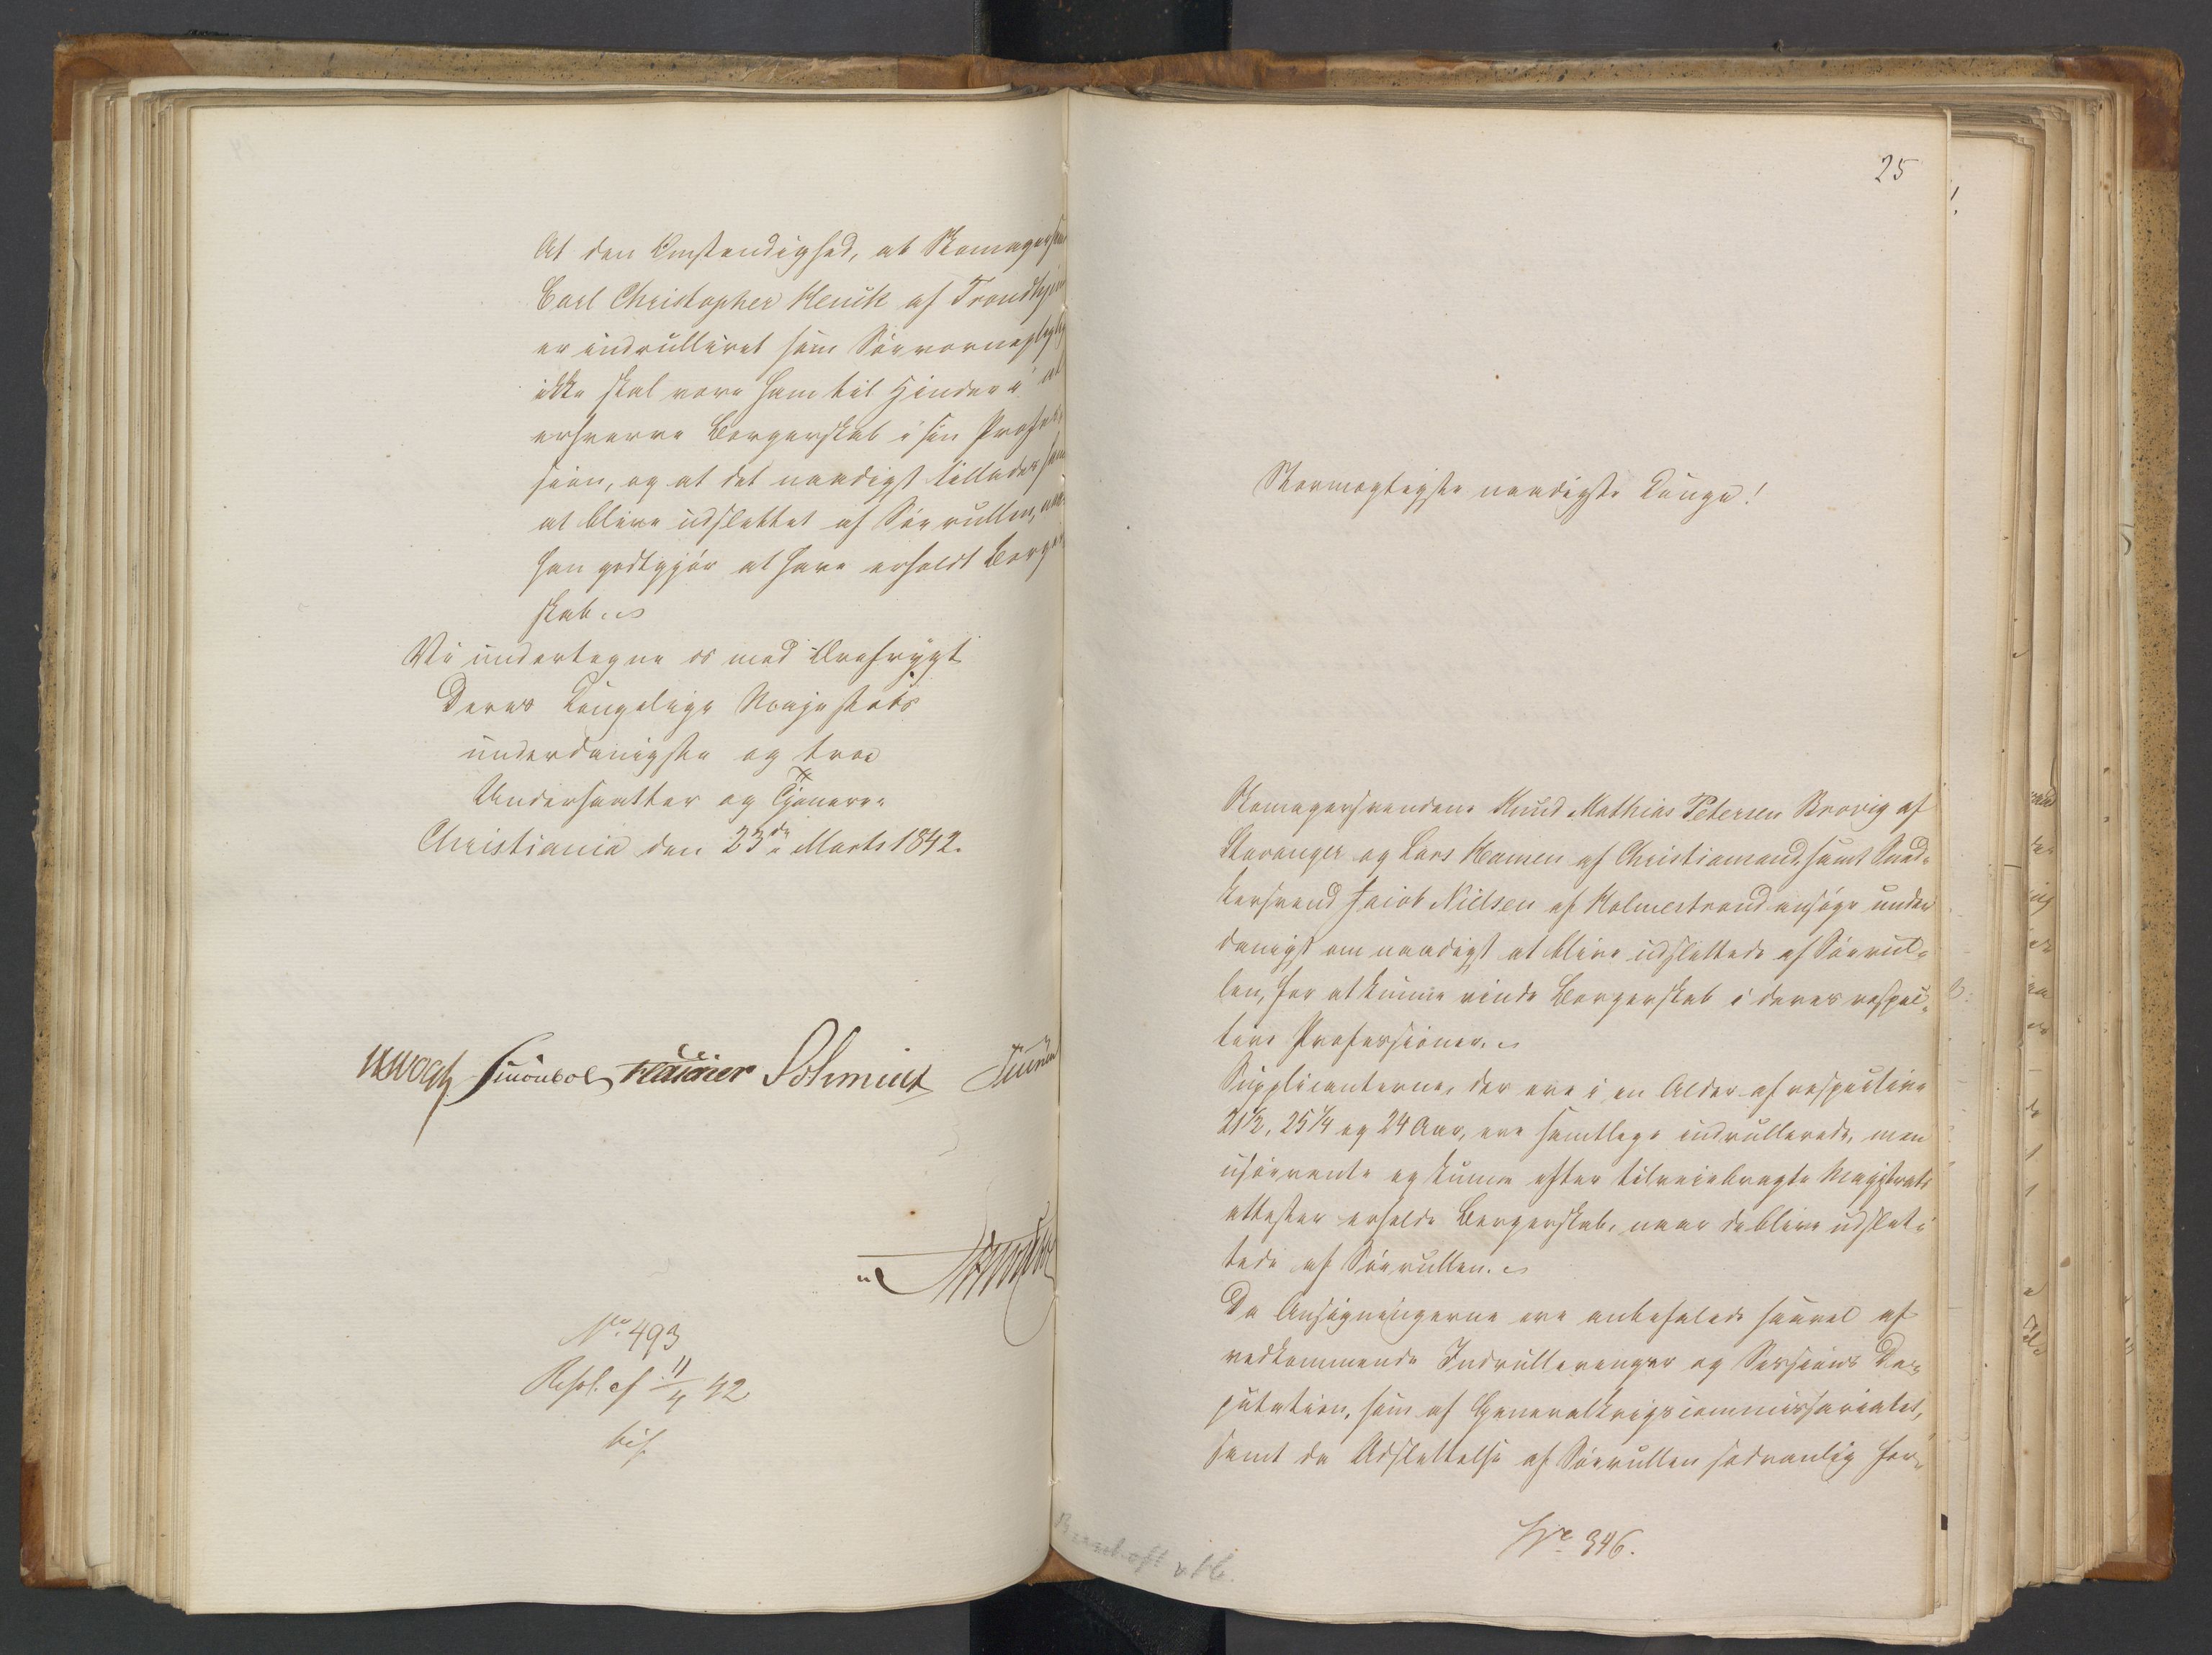 At den Omstendighed, at Skomagersv
Carl Christopher Kleuik af Trondhje
er indrulleret som Søeværnepligtig
ikke skal være ham til Hinder i at
erhverve Borgerskab i sin Profes-
sion, og at det naadigst tillades ham
at blive udslettet af Søerullen, naar
han godtgjør at have erholdt Borger
skab.
Vi undertegne os med Ærefrygt
Deres Kongelige Majestæts
underdanigste og troe
Undersaatter og Tjenere.
Christiania den 23de Marts 1842.
Vogt Sibbern Schmidt
No. 493
Resol. af 11/4 42
25
Stormægtigste naadigste Konge!
Skomagersvendene Knud Mathias Petersen Brovig af
Stavanger og Lars Hansen af Christiansand, samt Sned-
kersvend Jacob Nielsen af Holmestrand ansøge under
danigst om naadigst at blive udslettede af Søerul-
len, for at kunne vinde Borgerskab i deres respec-
tive Professioner.
Supplicanterne, der ere i en Alder af respective
21 1/2, 25 1/4 og 24 Aar, ere samtlige indrullerede, men
usøevante og kunne efter tilveiebragte Magistrats
attester erholde Borgerskab, naar de blive udslet-
tede af Søerullen.
Da Ansøgningerne ere anbefalede saavel af
vedkommende Indrullerings og Sessions De-
putation, som af Generalkrigscommissariatet,
samt da Udslettelse af Søerullen sædvanlig for-
No 346.